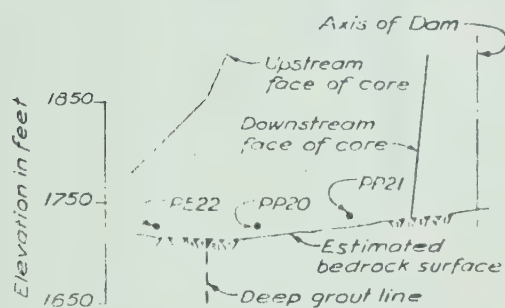 Axis of Dam
Upstream
face of core
1850
Downstream
face of core
Elevation in feet
1750
PE22
PP20
PP21
Estimated
bedrock surface
1650
Deep grout line